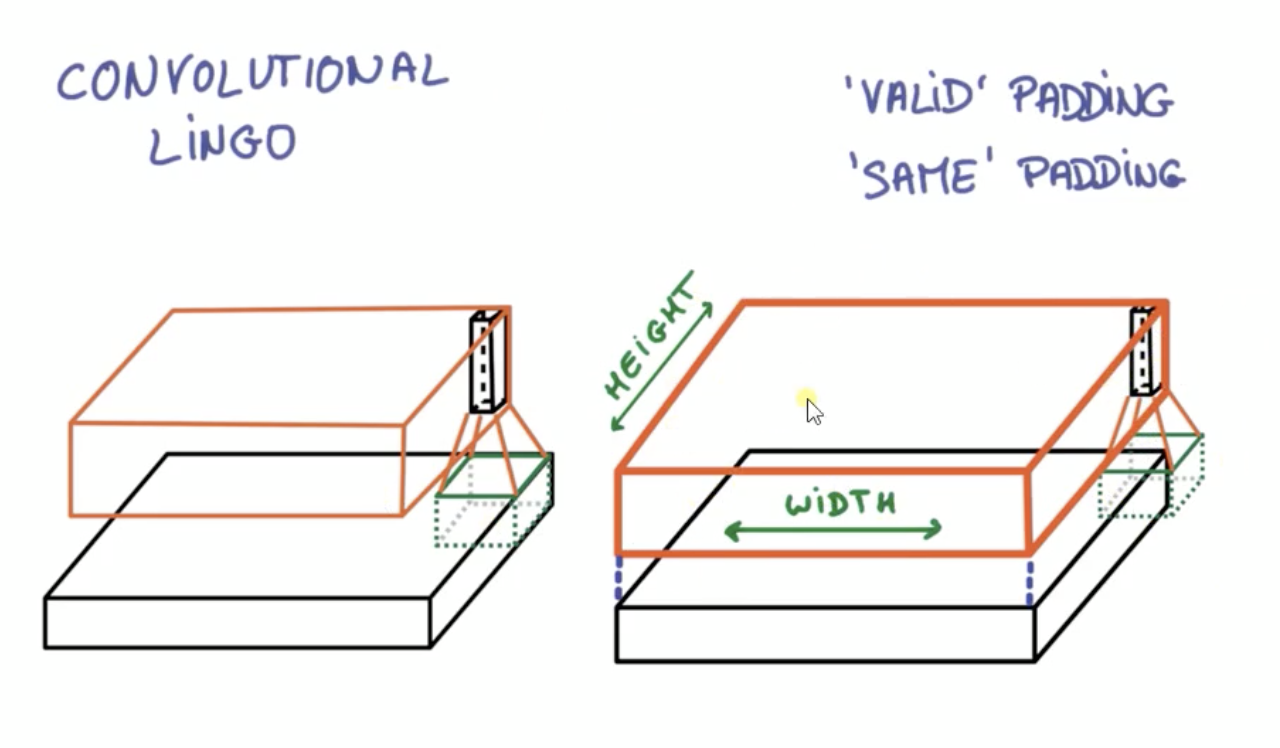 CONVOLUTIONAL
LiNGO
'VALiD' PADDiNG
'SAME' PADDiNG
HEiGHT
WiDTH